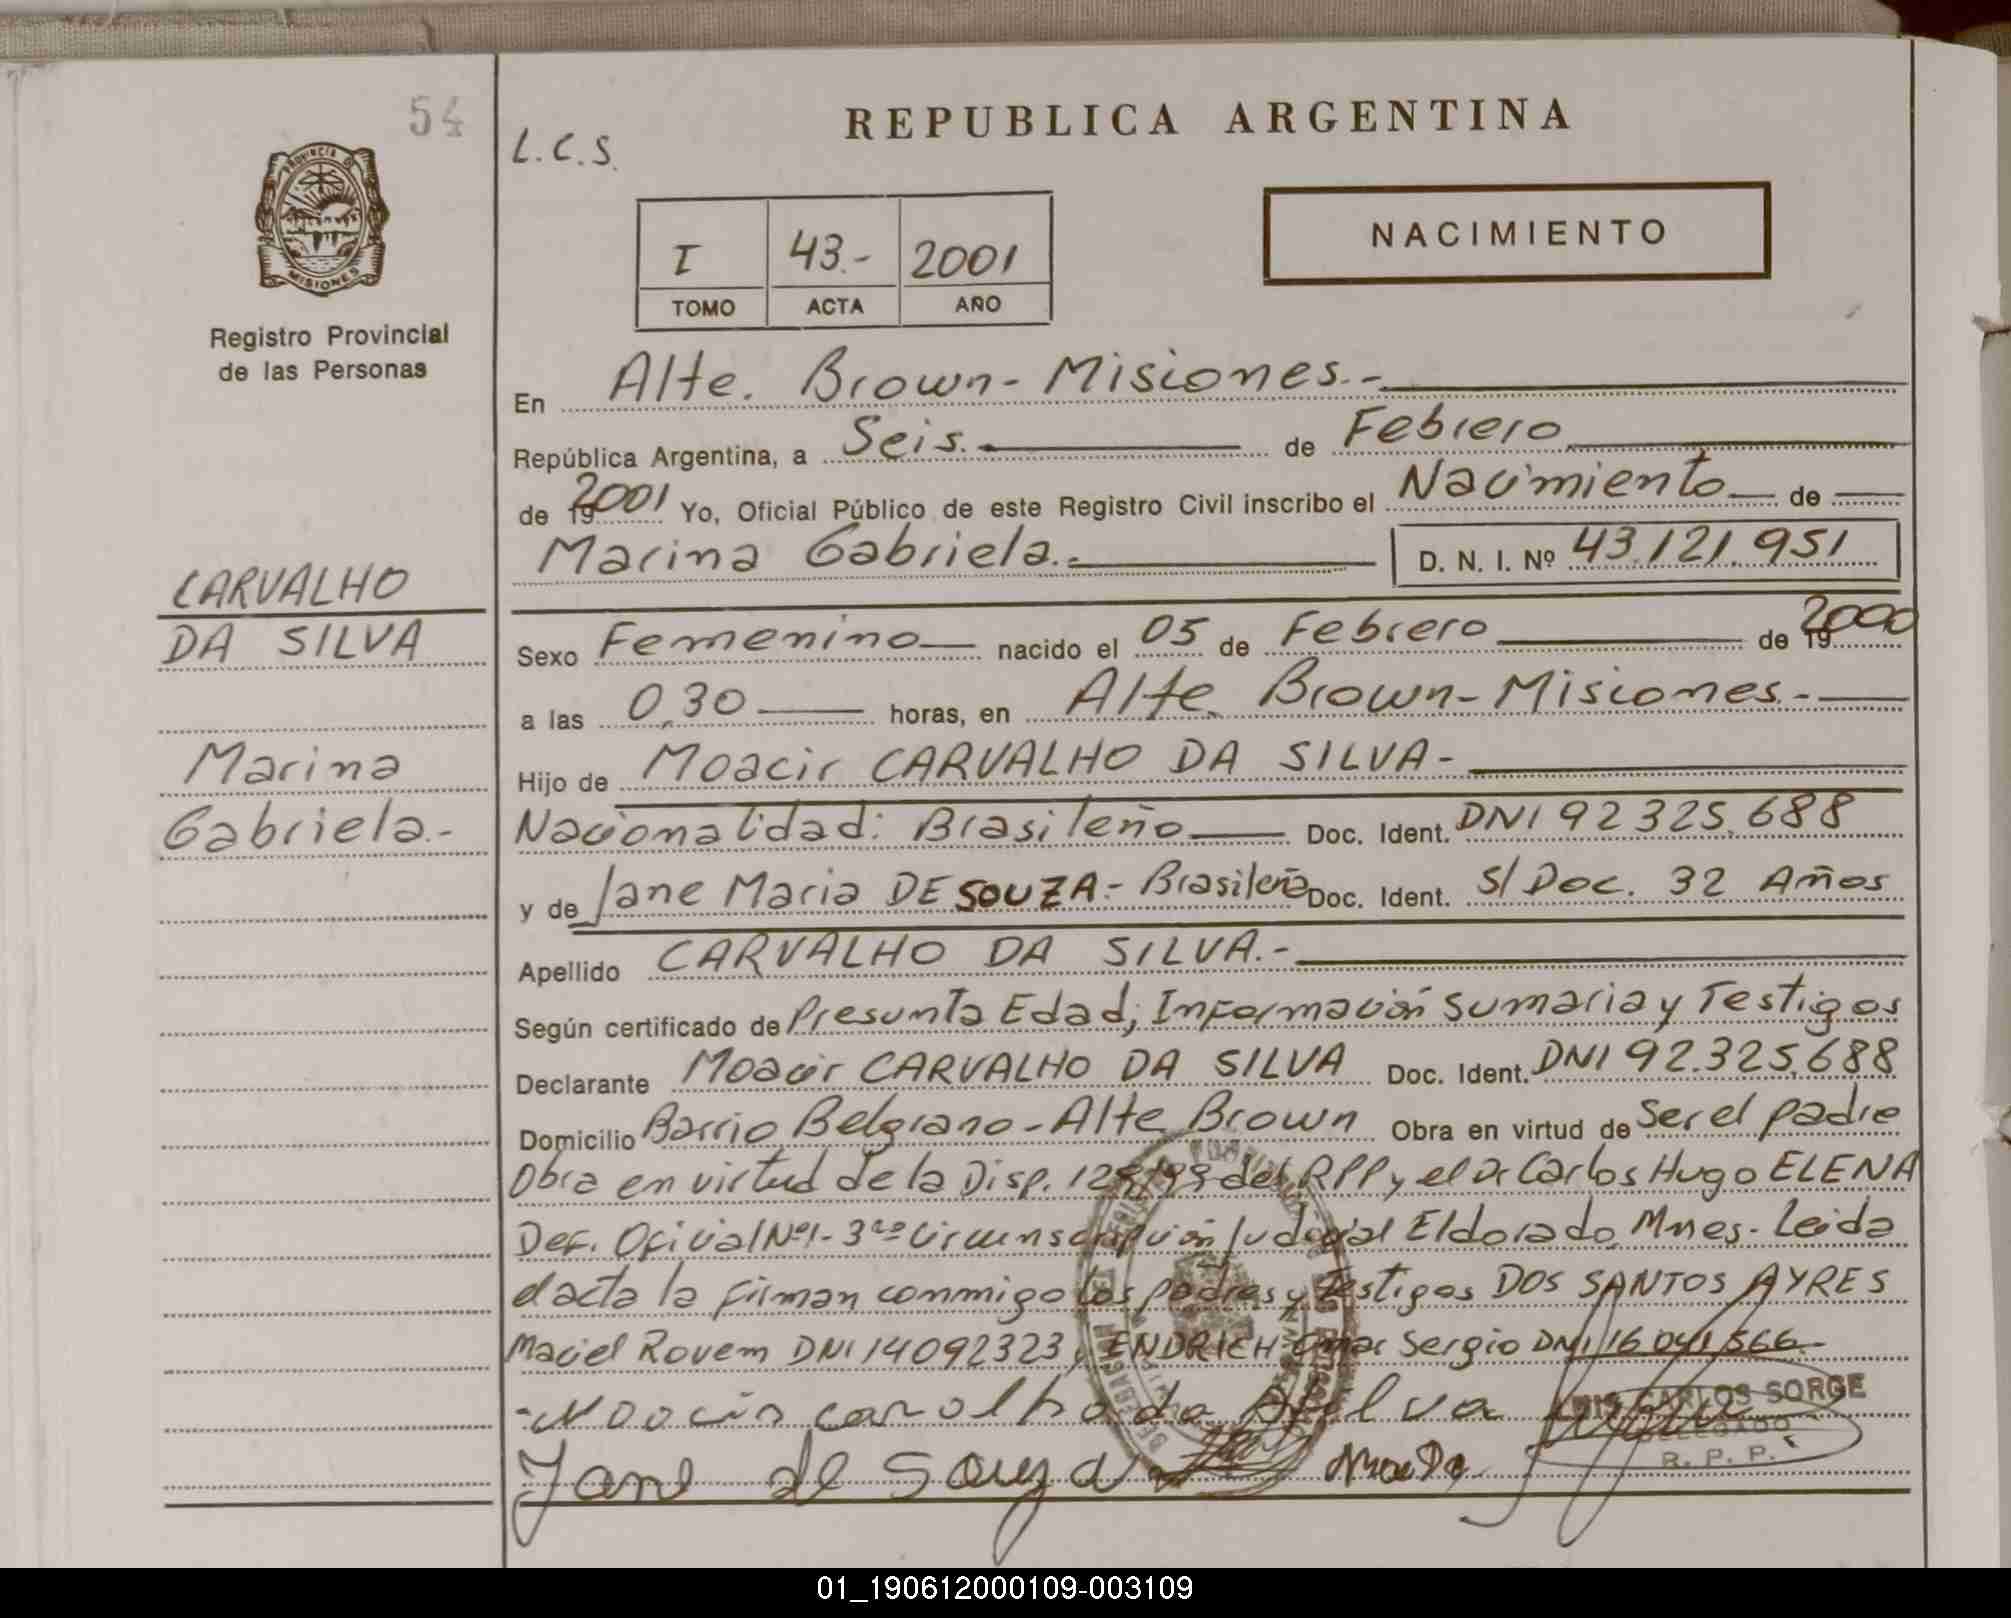 54
PROVINCIA DE
MISIONES
Registro Provincial
de las Personas
CARVALHO
DA SILVA
Marina
Gabriela.-
L.C.S.
REPUBLICA ARGENTINA
I 43.- 2001
TOMO ACTA AÑO
NACIMIENTO
En Alte. Brown-Misiones.-
República Argentina, a Seis. de Febrero
de 19 2001 Yo, Oficial Público de este Registro Civil inscribo el Nacimiento de
Marina Gabriela.- D. N. I. Nº 43.121.951
Sexo Femenino nacido el 05 de Febrero de 19 2000
a las 0,30 horas, en Alte. Brown-Misiones.-
Hijo de Moacir CARVALHO DA SILVA-
Nacionalidad: Brasileño Doc. Ident. DNI 92 325.688
y de Jane Maria DE SOUZA.- Brasileña Doc. Ident. S/Doc. 32 Años
Apellido CARVALHO DA SILVA.-
Según certificado de Presunta Edad; Información Sumaria y Testigos
Declarante Moacir CARVALHO DA SILVA Doc. Ident. DNI 92.325.688
Domicilio Barrio Belgrano-Alte Brown Obra en virtud de Ser el padre
Obra en virtud de la Disp. del RPP y el Dr Carlos Hugo ELENA
Def. Oficial Nº1-3ra Circunscripción Judicial Eldorado, Mnes- Leida
el acta la firman conmigo los padres y testigos DOS SANTOS AYRES
Maciel Rovem DNI 14092323, ENDRICH Omar Sergio DNI 16 041,566-
Moacir carvalho da Silva
LUIS CARLOS SORGE
DELEGADO
R. P. P.
Jane de Souza
01_190612000109-003109